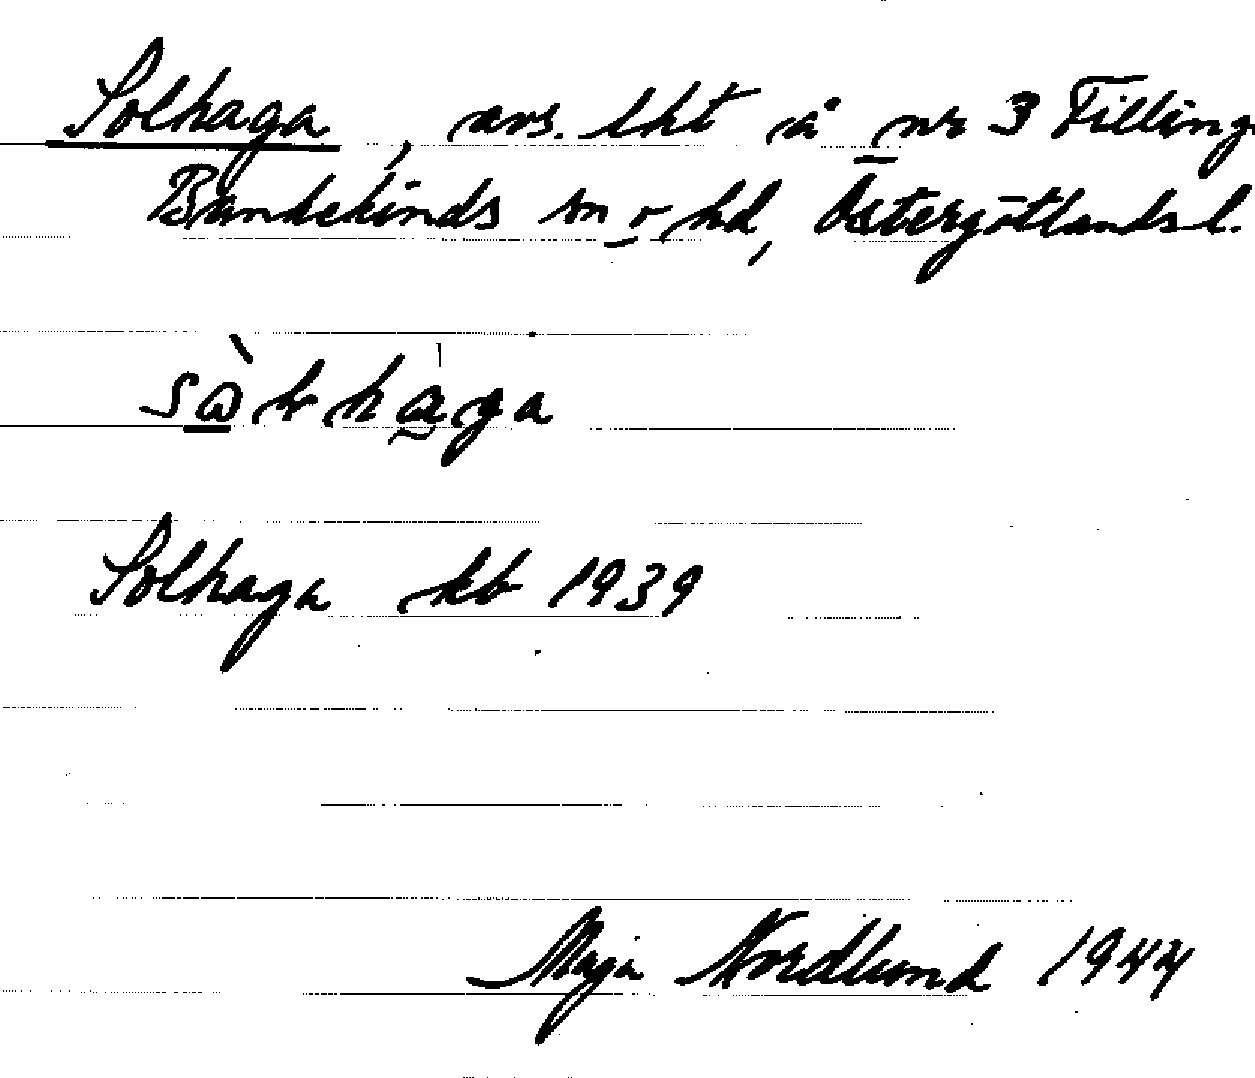 Solhaga, avs. lht å nr 3 Filling
Bankekinds sn o hd, Östergötlands l.
Solhaga kb 1939
Maja Nordlund 1944